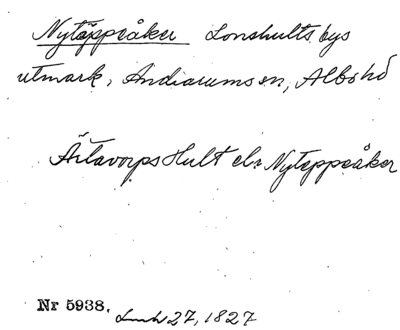 Nytäppeåker Lonshults bys
utmark, Andrarums sn, Albo hd
Årtavorps Hult el. Nyteppeåker
Nr 5938. Lmk 27, 1827